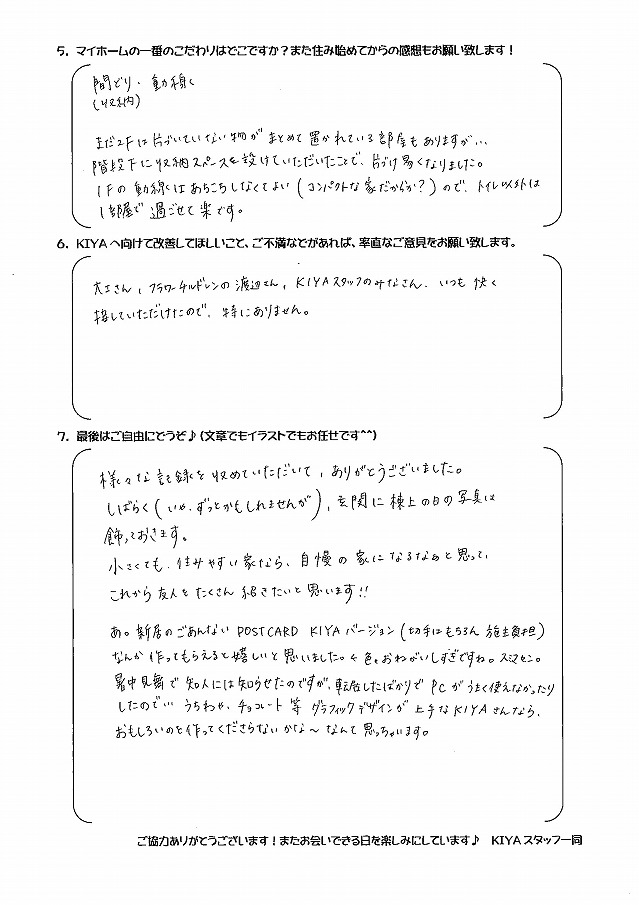 5. マイホームの一番のこだわりはどこですか？また住み始めてからの感想もお願い致します！
間どり・動線
(収納)
まだ2Fは片づいていない物がまとめて置かれている部屋もありますが…
階段下に収納スペースを設けていただいたことで、片づけ易くなりました。
1Fの動線はあちこちしなくてよい（コンパクトな家だからか？）ので、トイレ以外は
1部屋で過ごせて楽です。
6. KIYAへ向けて改善してほしいこと、ご不満などがあれば、率直なご意見をお願い致します。
大工さん、フラワーチルドレンの渡辺さん、KIYAスタッフのみなさん、いつも快く
接していただけたので、特にありません。
7. 最後はご自由にどうぞ♪(文章でもイラストでもお任せです^^)
様々な記録を収めていただいて、ありがとうございました。
しばらく（いや、ずっとかもしれませんが）、玄関に棟上の日の写真は
飾っておきます。
小さくても、住みやすい家なら、自慢の家になるなぁと思って、
これから友人をたくさん招きたいと思います!!
あ。新居のごあんない POSTCARD KIYAバージョン（切手はもちろん施主負担）
なんか作ってもらえると嬉しいと思いました。色々おねがいしすぎですね。スミマセン。
暑中見舞で知人には知らせたのですが、転居したばかりでPCがうまく使えなかったり
したので… うちわや、チョコレート等 グラフィックデザインが上手なKIYAさんなら、
おもしろいのを作ってくださらないかな〜なんて思っちゃいます。
ご協力ありがとうございます！またお会いできる日を楽しみにしています♪ KIYAスタッフ一同